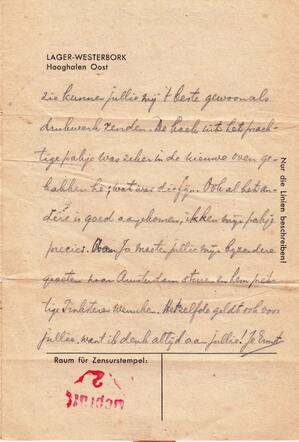 LAGER-WESTERBORK
Hooghalen Oost
die kunnen jullie mij 't beste gewoon als
drukwerk zenden. De koek uit het prach-
tige pakje was zeker in de nieuwe oven ge-
bakken hè; wat was die fijn. Ook al het an-
dere is goed aangekomen, ik ken mijn pakje
precies. Ja moeten jullie mijn byzondere
groeten naar Amsterdam sturen en hem
tige wenschen. Hetzelfde geldt ook voor
jullie, want ik denk altyd aan jullie! Je Ernst
Nur die Linien beschreiben!
Raum für Zensurstempel:
Geprüft
2